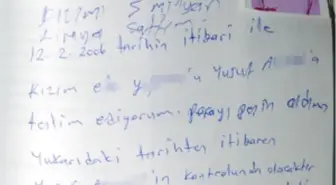 Kızımı 5 milyar
Liraya sattım
12-2-2006 tarihin itibari ile
Kızım 'ı Yusuf A 'a
teslim ediyorum. Parayı peşin aldım
Yukarıdaki tarihten itibaren
in kontrolunda olacaktır